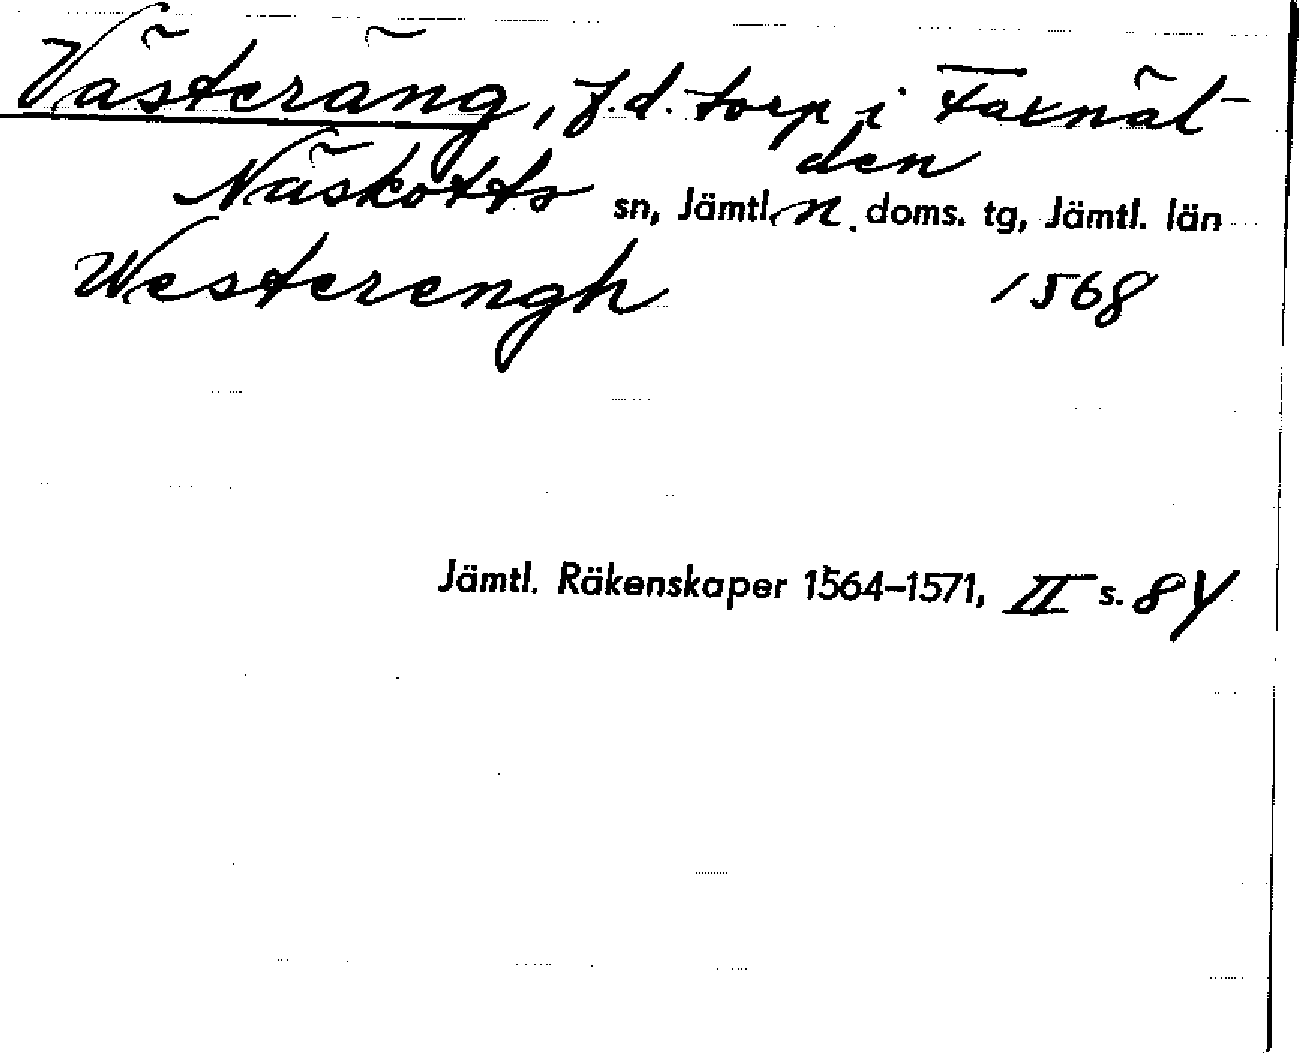 Västeräng, f.d. torp i Faxnäl-
den
Näskotts sn, Jämtl. n. doms. tg, Jämtl. län
Westerengh 1568
Jämtl. Räkenskaper 1564–1571, II s. 84